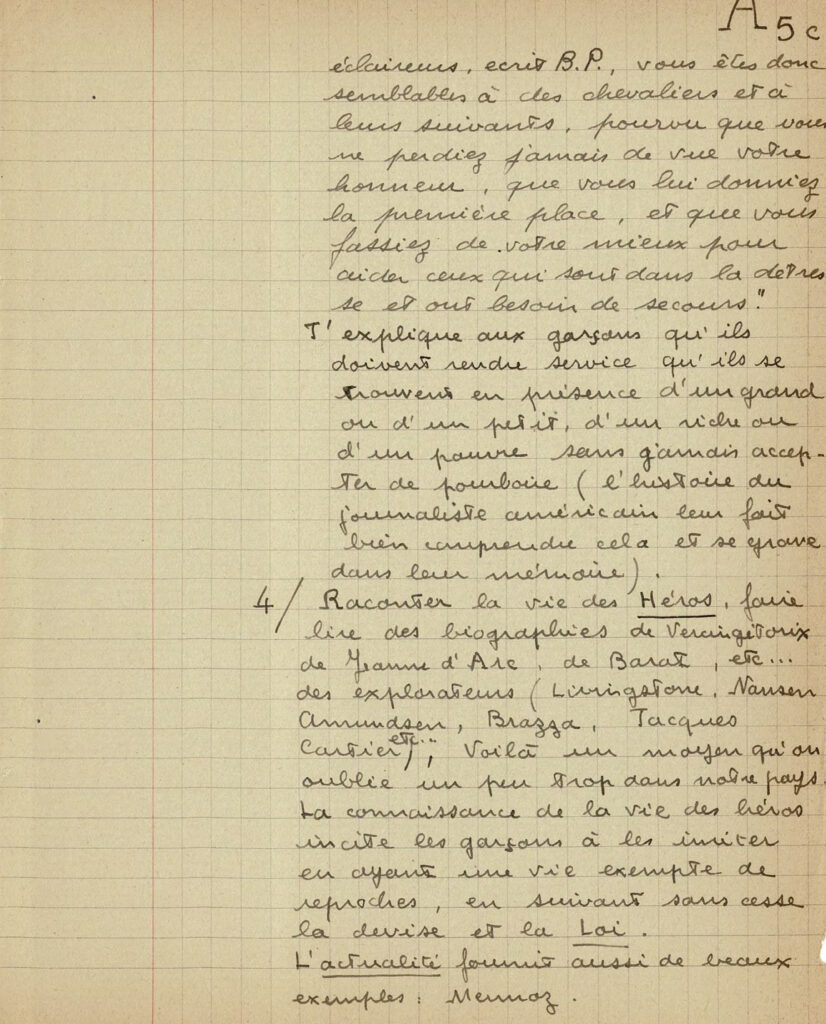 A 5 c
éclaireurs, ecrit B.P., vous êtes donc
semblables à des chevaliers et à
leurs suivants, pourvu que vous
ne perdiez jamais de vue votre
honneur, que vous lui donniez
la première place, et que vous
fassiez de votre mieux pour
aider ceux qui sont dans la détres
se et ont besoin de secours."
J'explique aux garçons qu'ils
doivent rendre service qu'ils se
trouvent en présence d'un grand
ou d'un petit, d'un riche ou
d'un pauvre sans jamais accep-
ter de pourboire (l'histoire du
journaliste américain leur fait
bien comprendre cela et se grave
dans leur mémoire).
4/ Raconter la vie des Héros, faire
lire des biographies de Vercingétorix
de Jeanne d'Arc, de Barat, etc...
des explorateurs (Livingstone, Nansen
Amundsen, Brazza, Jacques
Cartier, etc...) Voilà un moyen qu'on
oublie un peu trop dans notre pays.
La connaissance de la vie des héros
incite les garçons à les imiter
en ayant une vie exempte de
reproches, en suivant sans cesse
la devise et la Loi.
L'actualité fournit aussi de beaux
exemples : Mermoz.